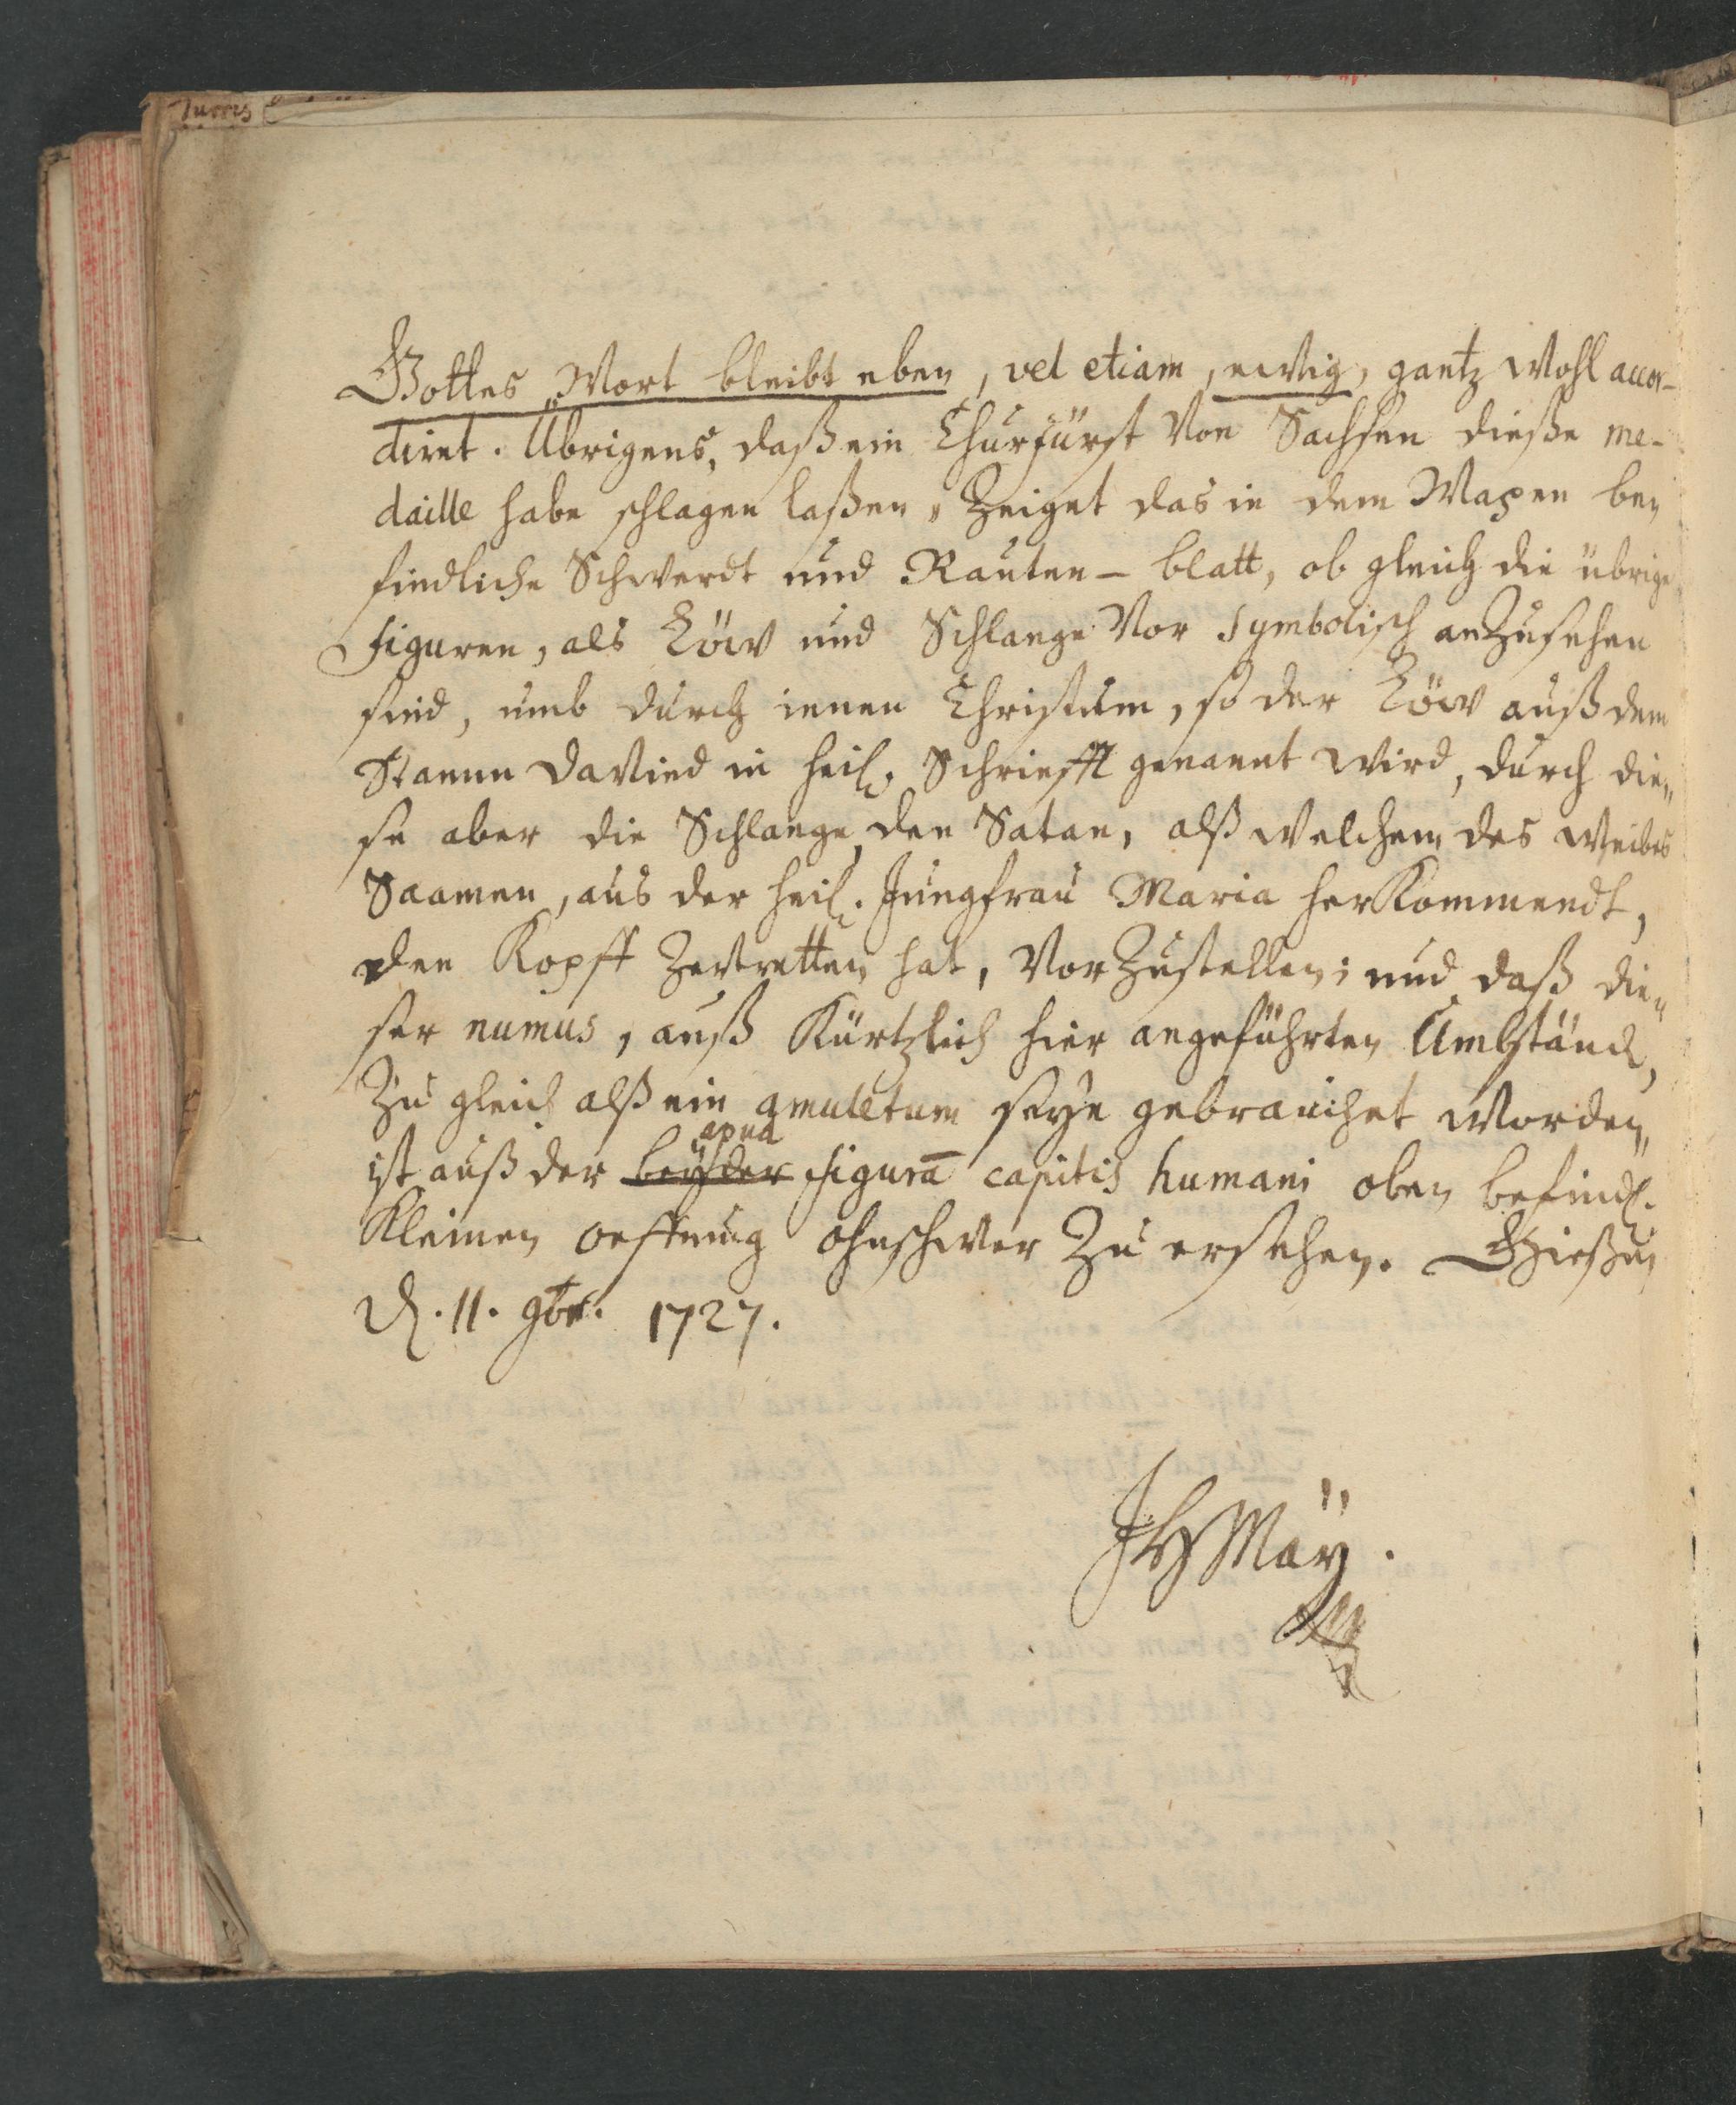 Turris
Gottes Wort bleibt eben, vel etiam, ewig, gantz wohl accor-
diret. Übrigens, daß ein Churfürst von Sachsen dieße me-
daille habe schlagen laßen, zeiget das in dem Wapen be„
findliche Schwerdt und Rauten-blatt, ob gleich die übrige
figuren, als Löw und Schlange vor symbolisch anzusehen
sind, umb durch jenen Christum, so der Löw auß dem
Stamm David in heil. Schriefft genannt wird, durch die„
se aber die Schlange, den Satan, alß welchem des weibes
Saamen, aus der heil. Jungfrau Maria herkommendt,
den Kopff zertretten hat, vorzustellen; und daß die„
ser numus, auß kürtzlich hier angeführten Umbständ,
zu gleich alß ein amuletum seye gebrauchet worden,
apud
ist auß der bey der figurā capitis humani oben befindl.
kleinen oeffnung ohnschwer zu ersehen. Gießen
d. 11. 9br. 1727.
JHMäy.